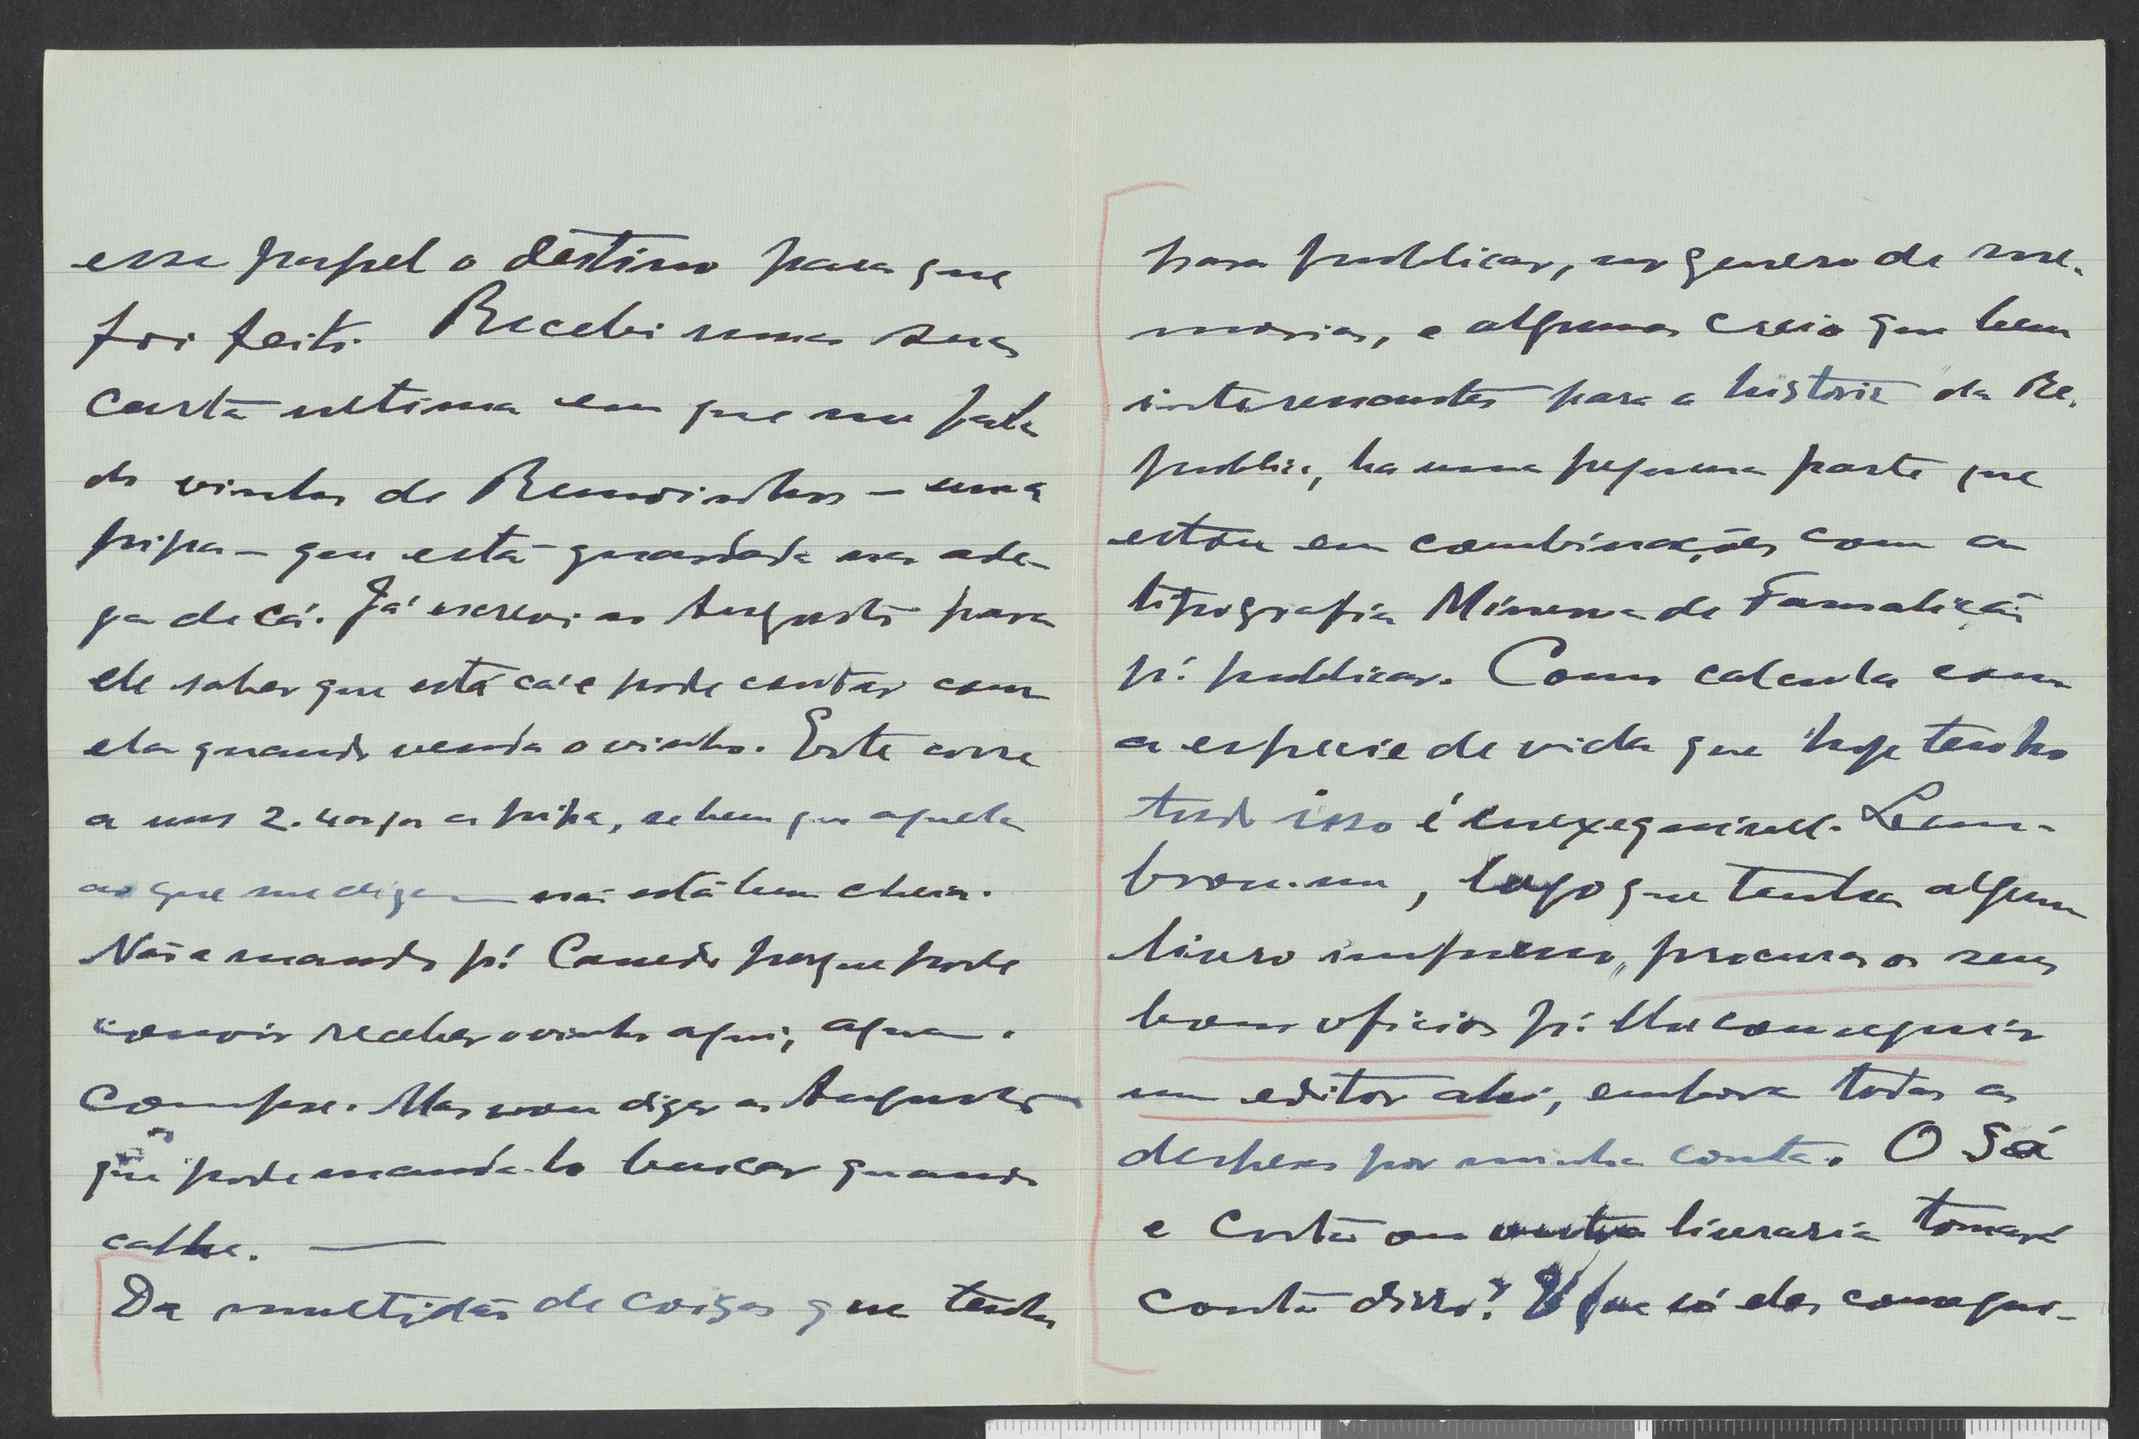 esse papel o destino para que
foi feito. Recebi uma sua
carta ultima em que me fala
do vinho de Remoinhos — uma
pipa — que está guardada na ade-
ga de cá. Já escrevi ao Augusto para
ele saber que está cá e pode contar com
ela quando venda o vinho. Este corre
a uns 2. a pipa, se bem que aquela
ao que me dizem não está bem cheia.
Não a mando pª Canedo porque pode
convir receber o vinho aqui, a quem
compre. Mas vou dizer ao Augusto
que pode mandá-lo buscar quando
calhe. —
Da multidão de coisas que tenho
para publicar, no genero de me-
morias, e algumas creio que bem
interessantes para a historia da Re-
publica, ha uma pequena parte que
estou em combinações com a
tipografia Minerva de Famalicão
pª publicar. Como calcula com
a especie de vida que hoje tenho
tudo isso é inexequivel. Lem-
brou-me, logo que tenha algum
livro impresso, procurar os seus
bons oficios pª me conseguir
um editor ahi, embora todas as
despesas por minha conta. O Sá
e Costa ou outra livraria tomará
conta disso? que só eles consegui-